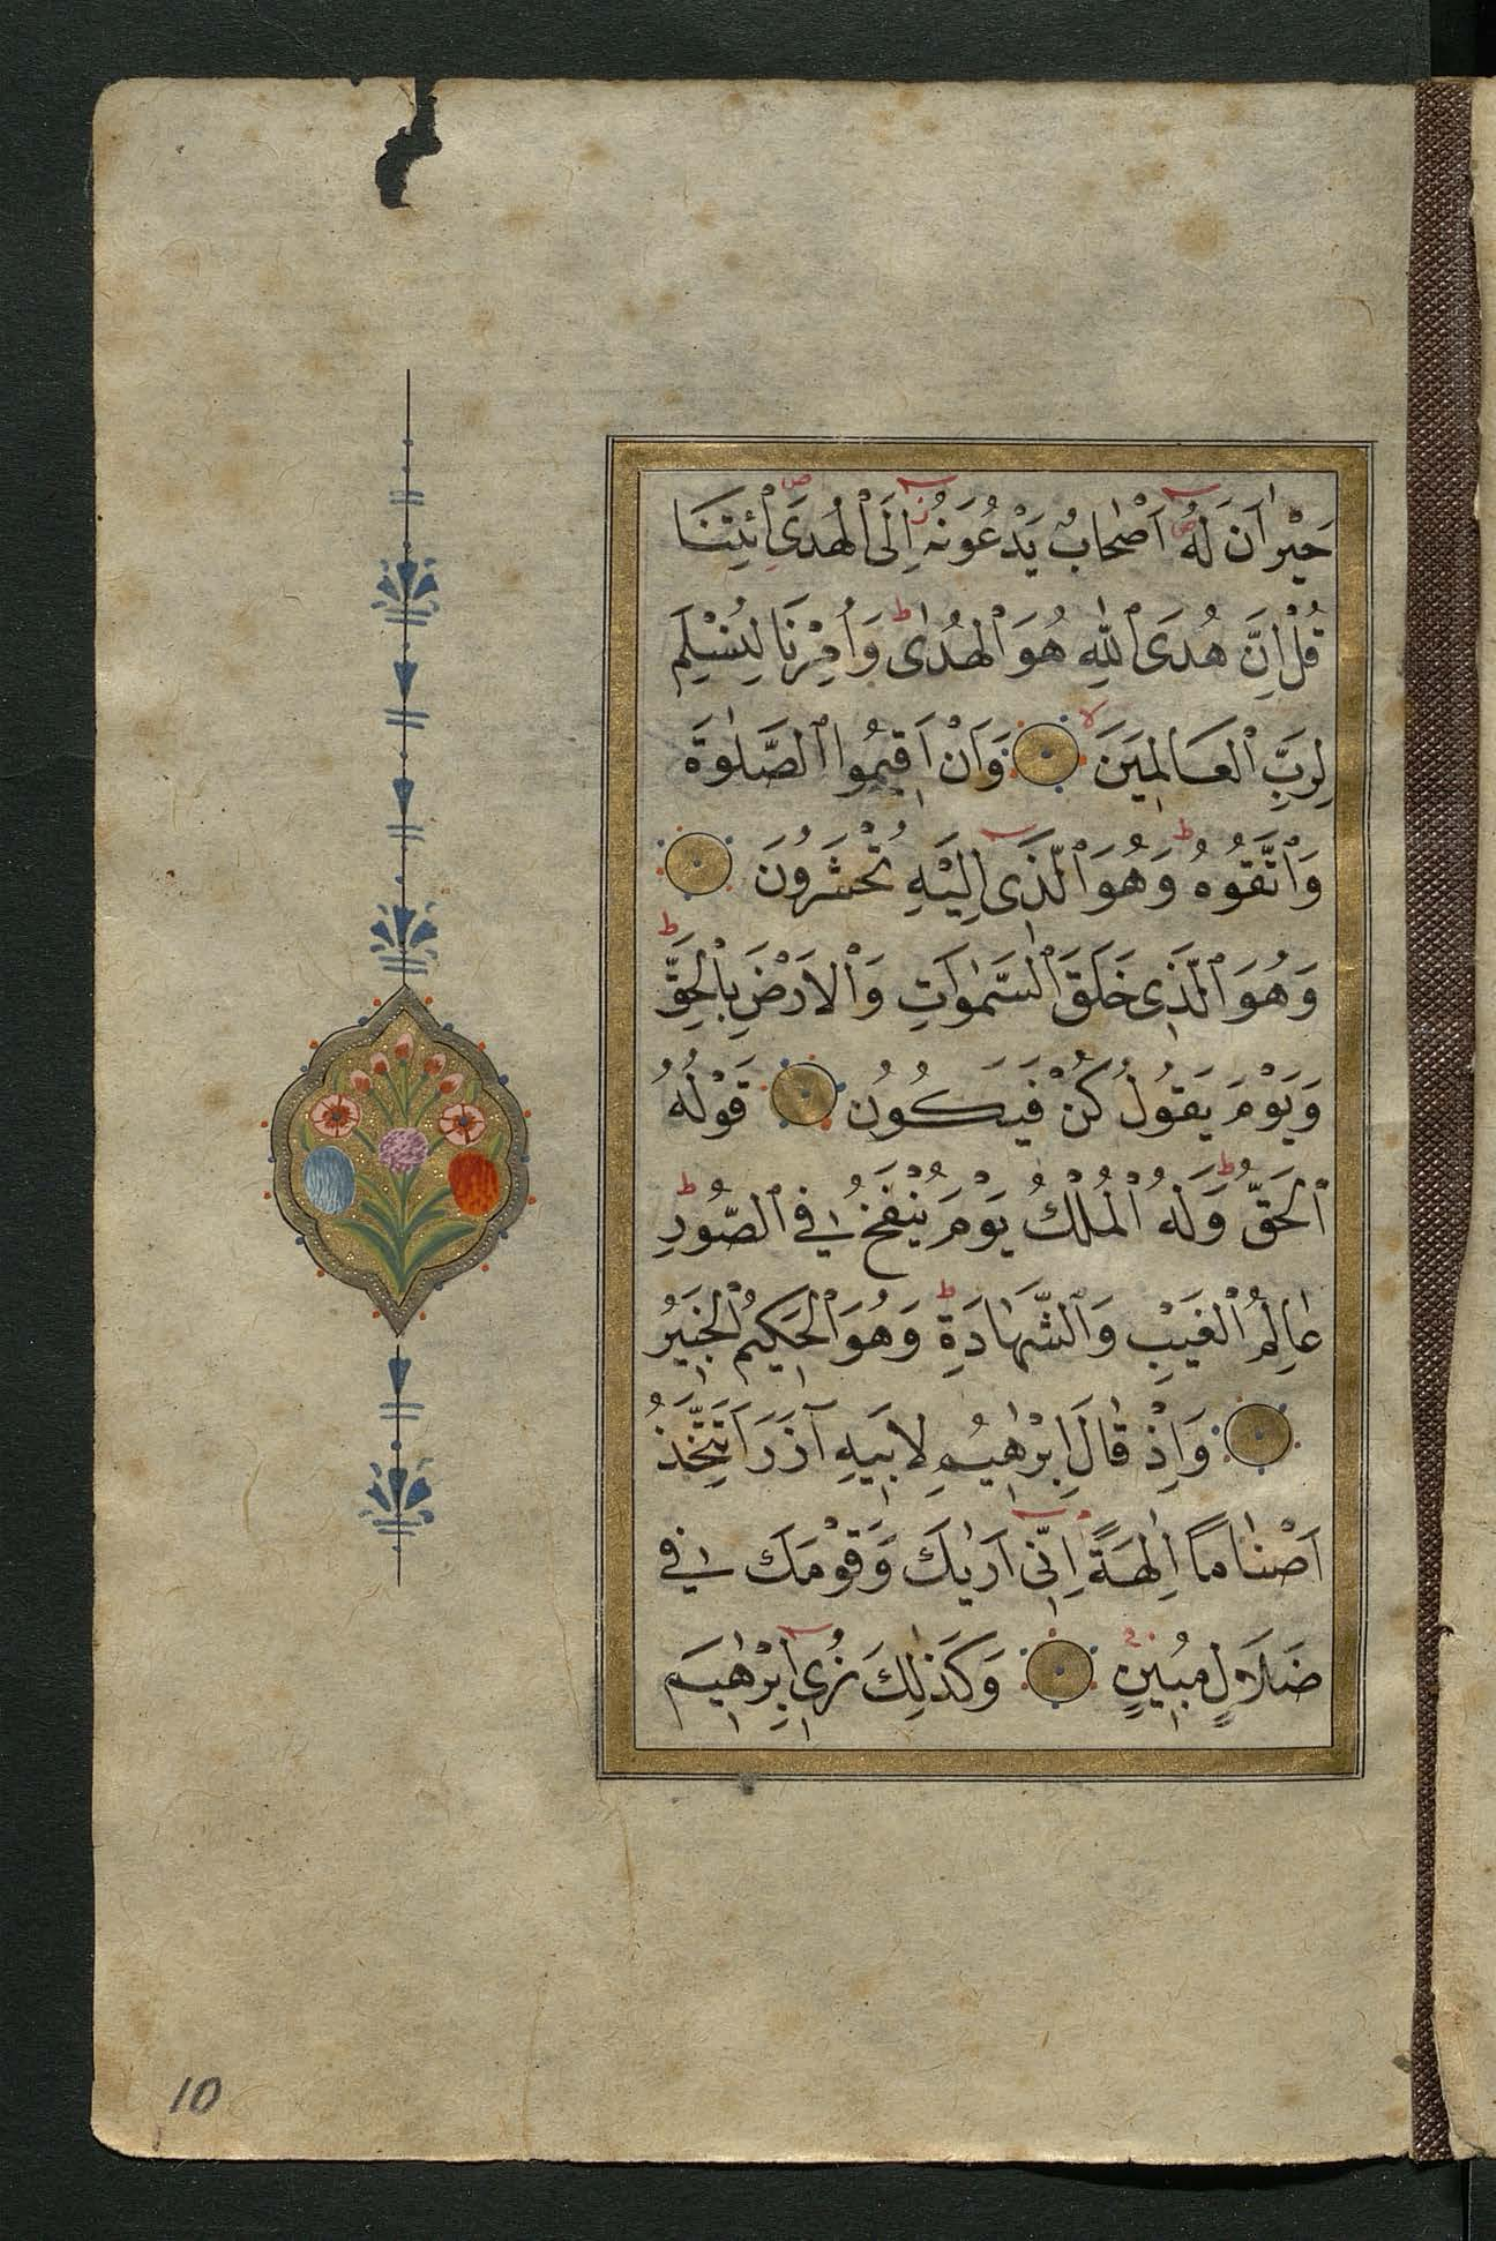 حَيْرٰانَ لَهُ اَصْحٰابٌ يَدْعُونَهُ اِلَى الْهُدَى ائْتِنَا
قُلْ اِنَّ هُدَى اللّٰهِ هُوَ الْهُدٰى وَاُمِرْنَا لِنُسْلِمَ
لِرَبِّ الْعَالَمِينَ وَاَنْ اَقِيمُوا الصَّلٰوةَ
وَاتَّقُوهُ وَهُوَ الَّذِى اِلَيْهِ تُحْشَرُونَ
وَهُوَ الَّذِى خَلَقَ السَّمٰوَاتِ وَالْاَرْضَ بِالْحَقِّ
وَيَوْمَ يَقُولُ كُنْ فَيَكُونُ قَوْلُهُ
الْحَقُّ وَلَهُ الْمُلْكُ يَوْمَ يُنْفَخُ فِى الصُّورِ
عٰالِمُ الْغَيْبِ وَالشَّهٰادَةِ وَهُوَ الْحَكِيمُ الْخَبِيرُ
وَاِذْ قٰالَ اِبْرٰهِيمُ لِاَبِيهِ آزَرَ اَتَتَّخِذُ
اَصْنٰامًا اٰلِهَةً اِنِّى اَرٰيكَ وَقَوْمَكَ فِى
ضَلَالٍ مُبِينٍ وَكَذٰلِكَ نُرِى اِبْرٰهِيمَ
10